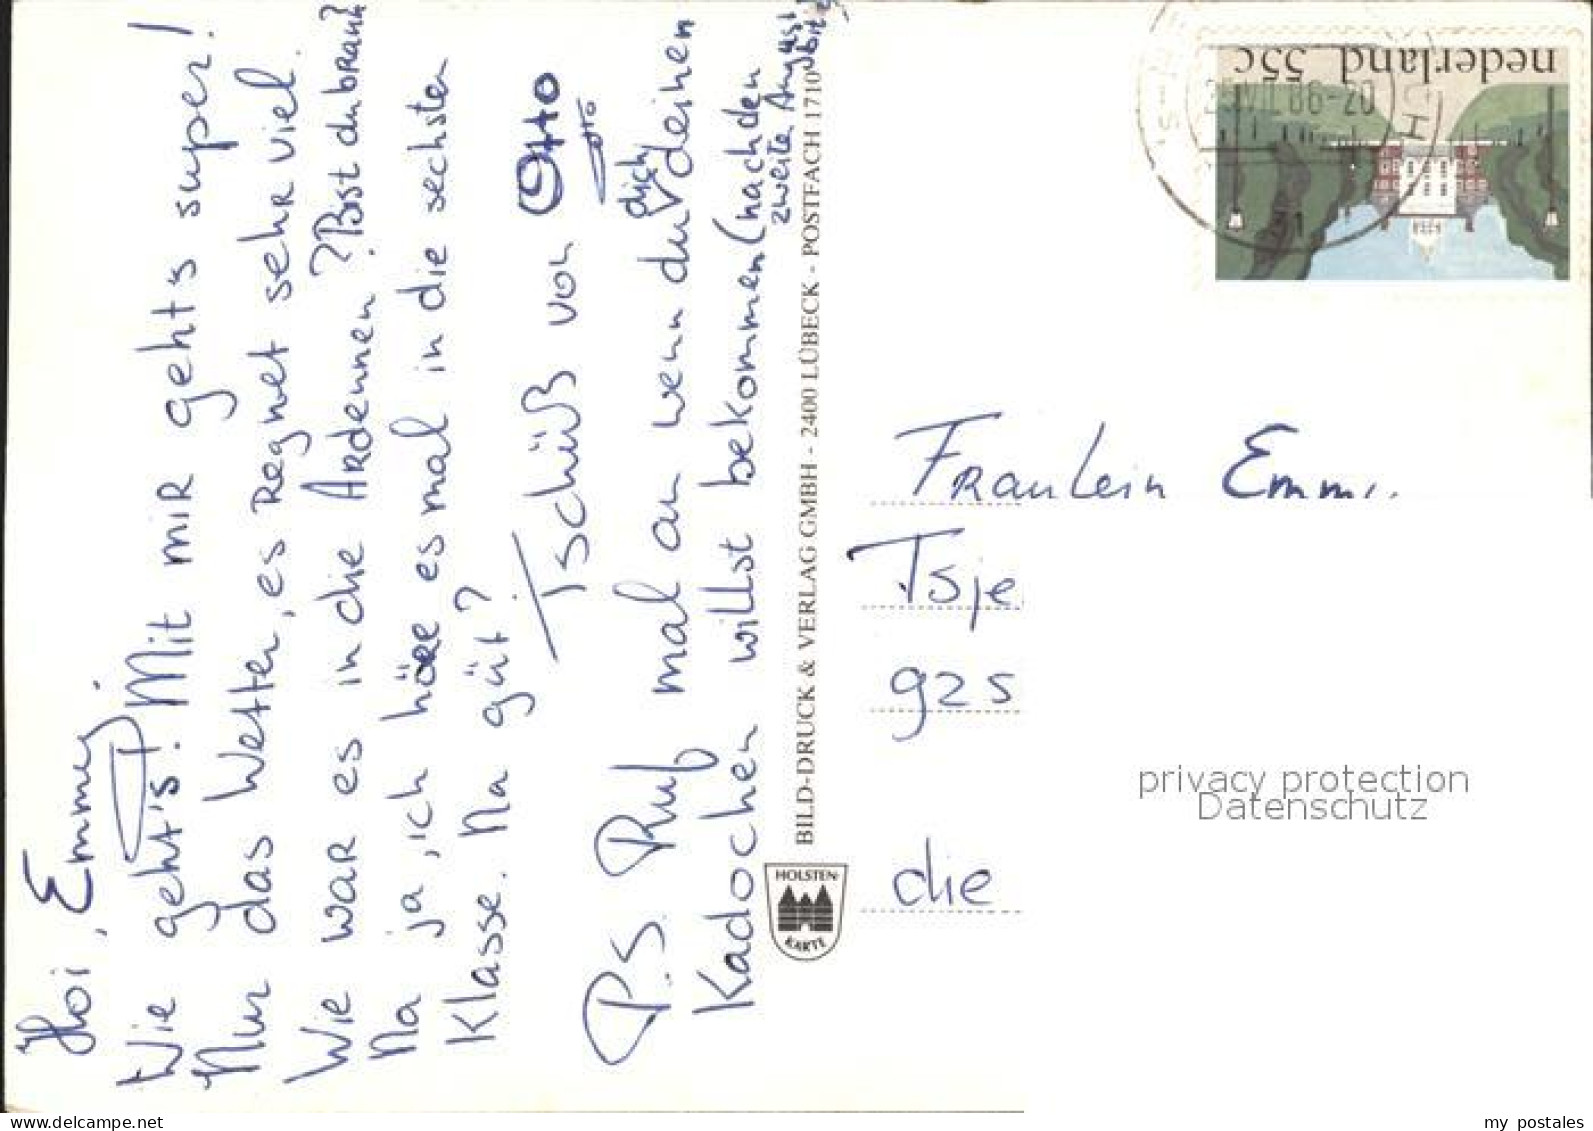 Hoi, Emmy.
Wie geht's! Mit mir geht's super!
Nur das Wetter, es regnet sehr viel.
Wie war es in die Ardennen? Bist du braun?
Na ja, ich höre es mal in die sechste
Klasse. Na güt?
Tschüß von Otto
Otto
P.S. Ruf mal an wenn du dich deinen
Kadochen willst bekommen (nach den
zweite August
BILD-DRUCK & VERLAG GMBH - 2400 LÜBECK - POSTFACH 1710
HOLSTEN-
KARTE
nederland 55c
25 VII 86-20
31
Fraulein Emmi.
Tsje
925
die
privacy protection
Datenschutz
www.delcampe.net
my postales